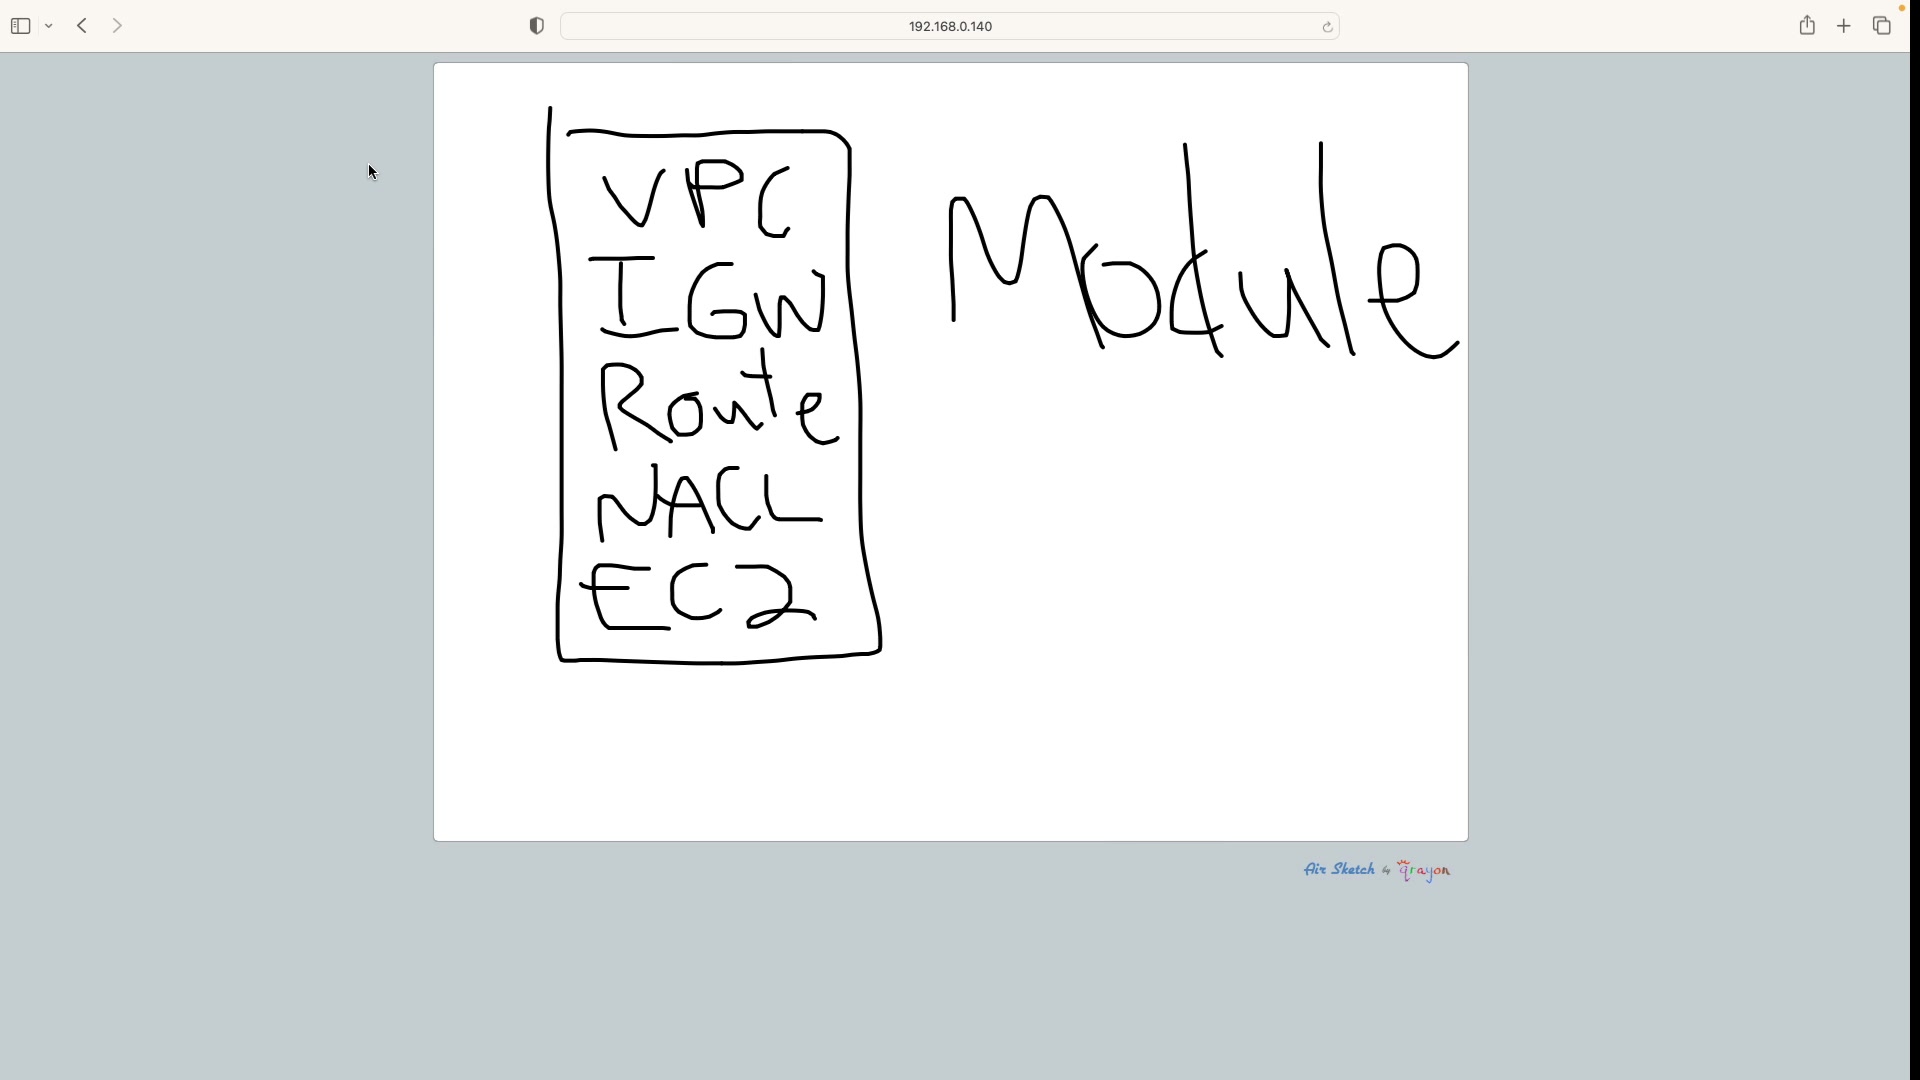 192.168.0.140
VPC
IGW
Route
NACL
EC2
Module
Air Sketch by qrayon